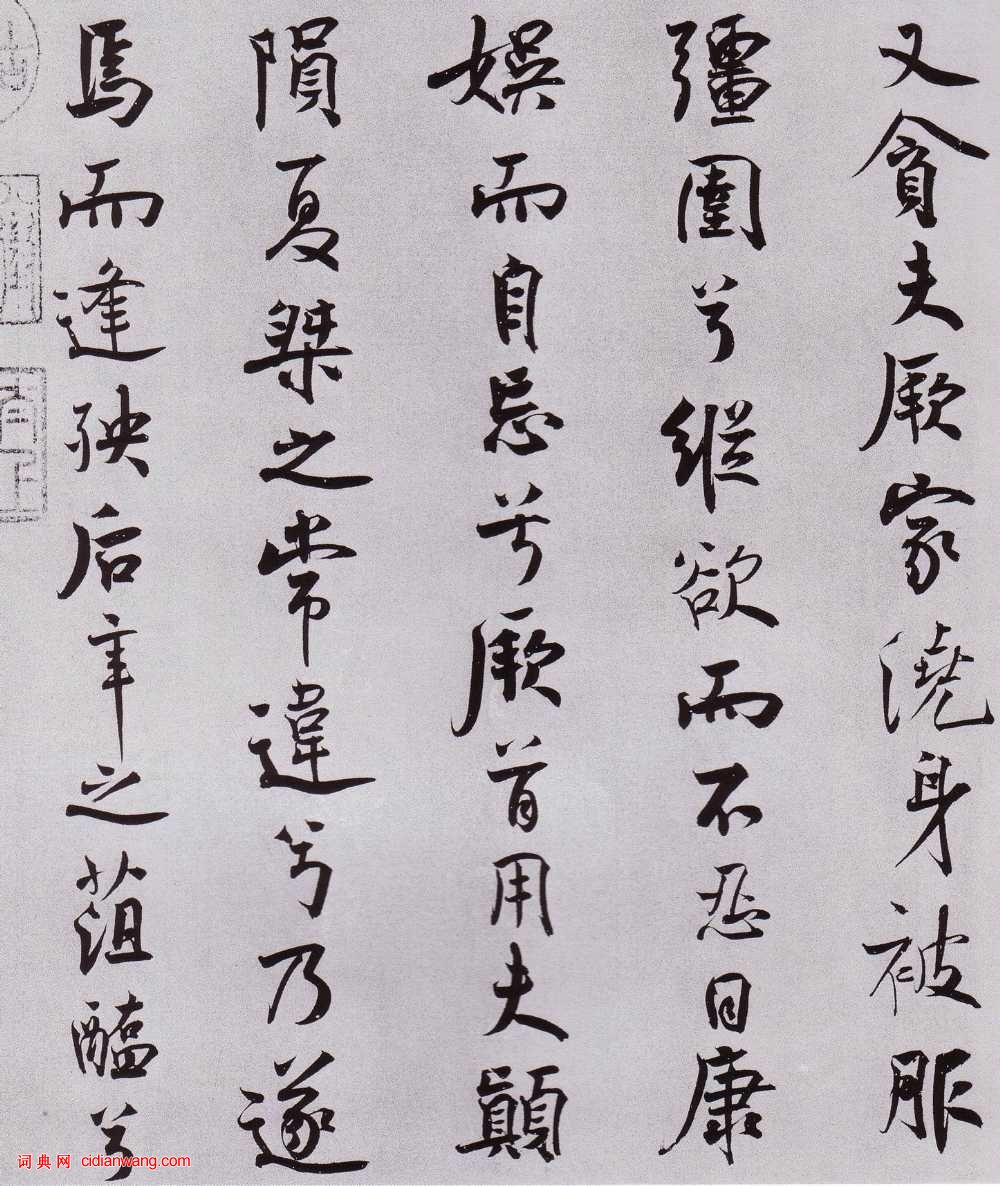 又貪夫厥家澆身被服
彊圉兮縱欲而不忍日康
娛而自忘兮厥首用夫顛
隕夏桀之常違兮乃遂
焉而逢殃后辛之菹醢兮
词典网 cidianwang.com